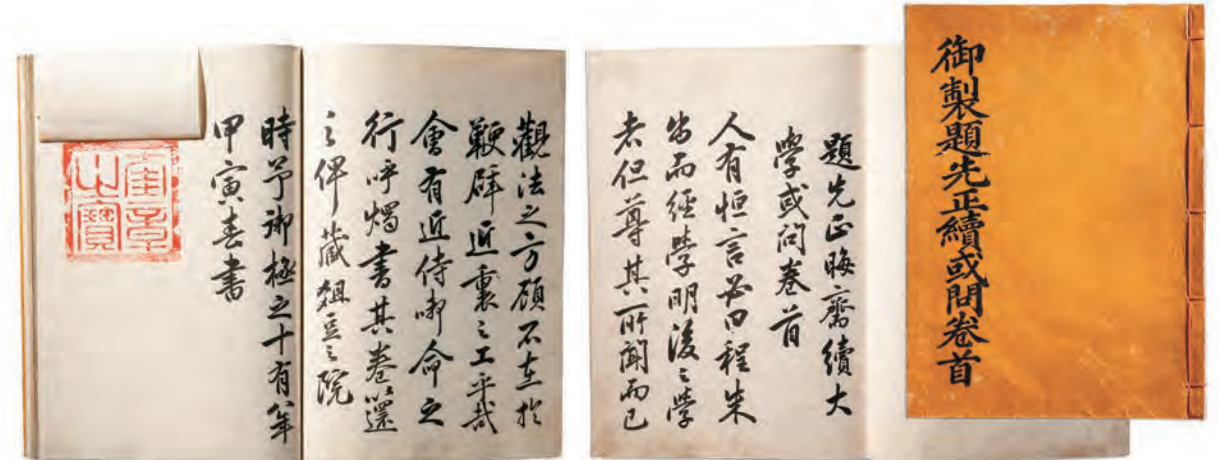 御製題先正續或問卷首
題先正晦齋續大
學或問卷首
人有恒言必曰程朱
出而經學明後之學
者但尊其所聞而已
觀法之方顧不在於
鞭辟近裏之工乎哉
會有近侍啣命之
行呼燭書其卷以還
之俾藏俎豆之院
時予御極之十有八年
甲寅春書
之寶